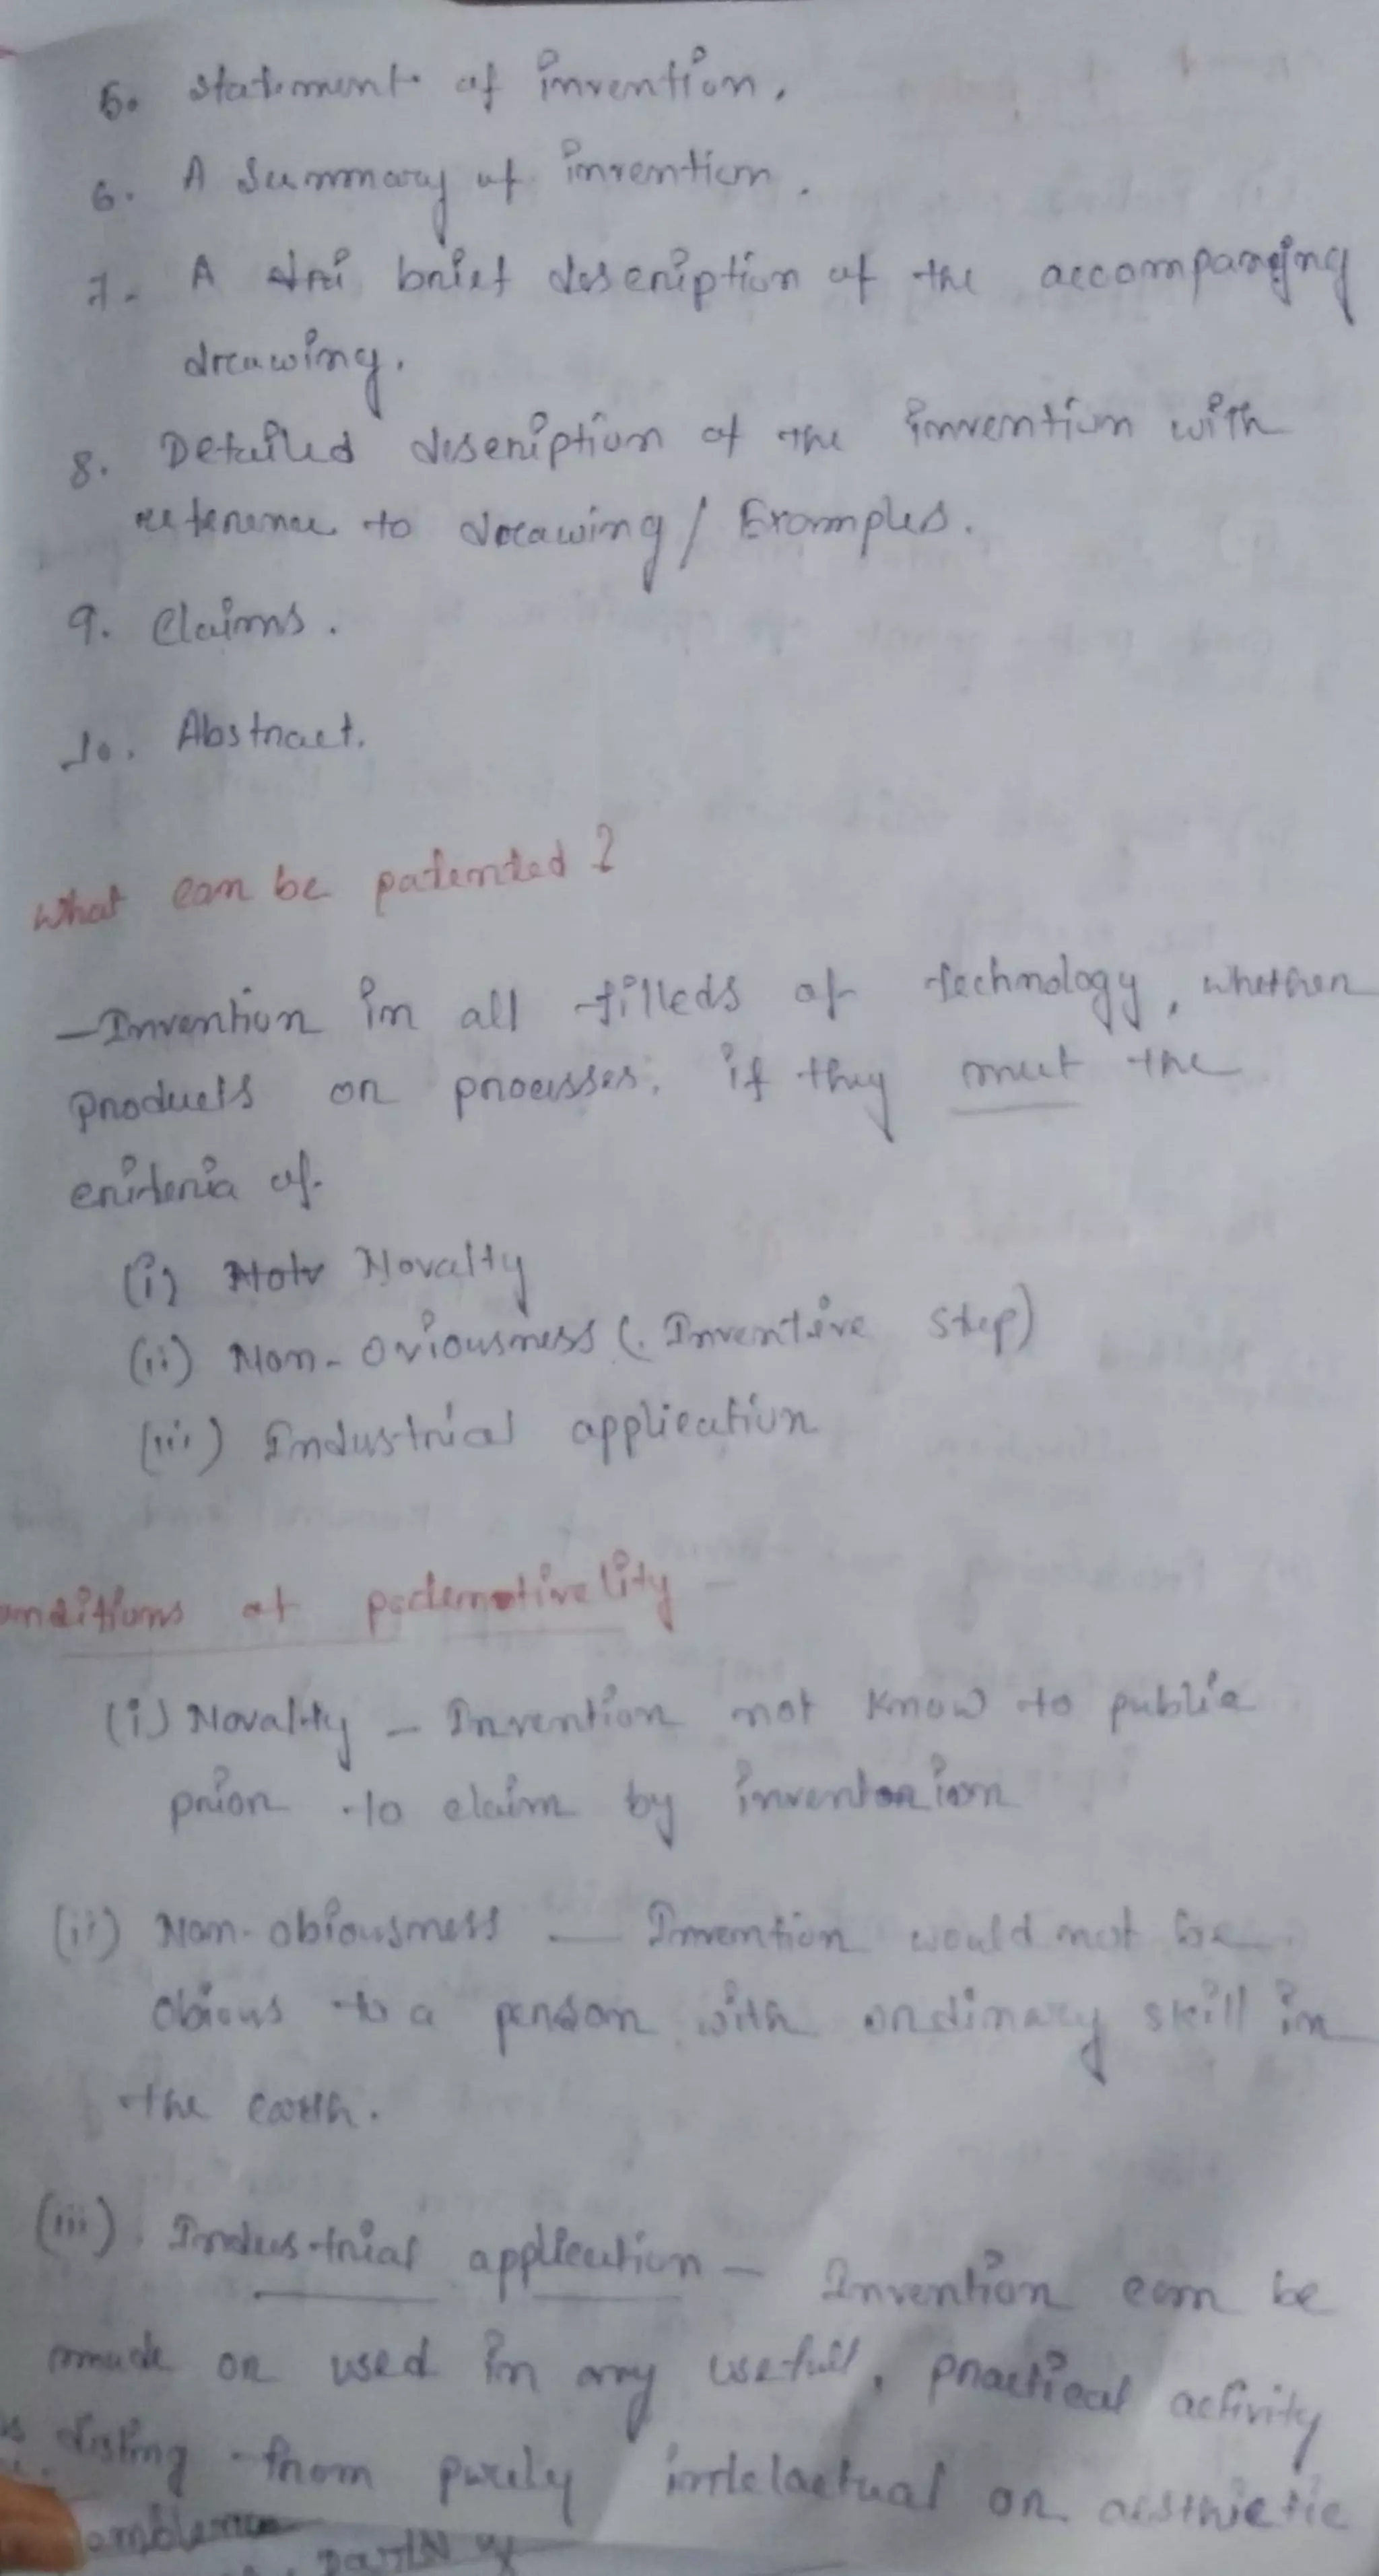 5. Statement of invention.
6. A Summary of invention.
7. A brief description of the accompanying
drawing.
8. Detailed description of the invention with
reference to drawing / Examples.
9. Claims.
10. Abstract.
What can be patented ?
- Invention in all filleds of technology, whether
products or processes, if they meet the
criteria of
(i) Novalty
(ii) Non-Oviousness (Inventive step)
(iii) Industrial application
onditions of
(i) Novalty - Invention not know to public
prior to claim by
(ii) Non-obiousness — Invention would not be
obious to a person with ordinary skill in
the earth.
(iii) Industrial application - Invention can be
made or used in any usefull, practical activity
as from purely intelactual or